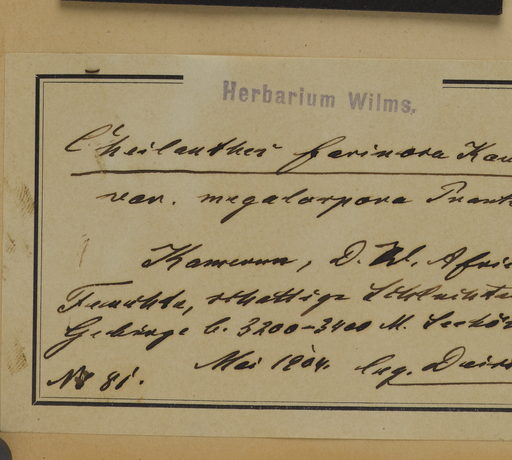 Herbarium Wilms.
Cheilanthes farinosa Kau
var. megalospora
Kamerun, D. W. Afri
Feuchte, schattige Schluchte
Gebirge b. 3200-3400 M. Seehö
Mai 1904. leg.
No 81.